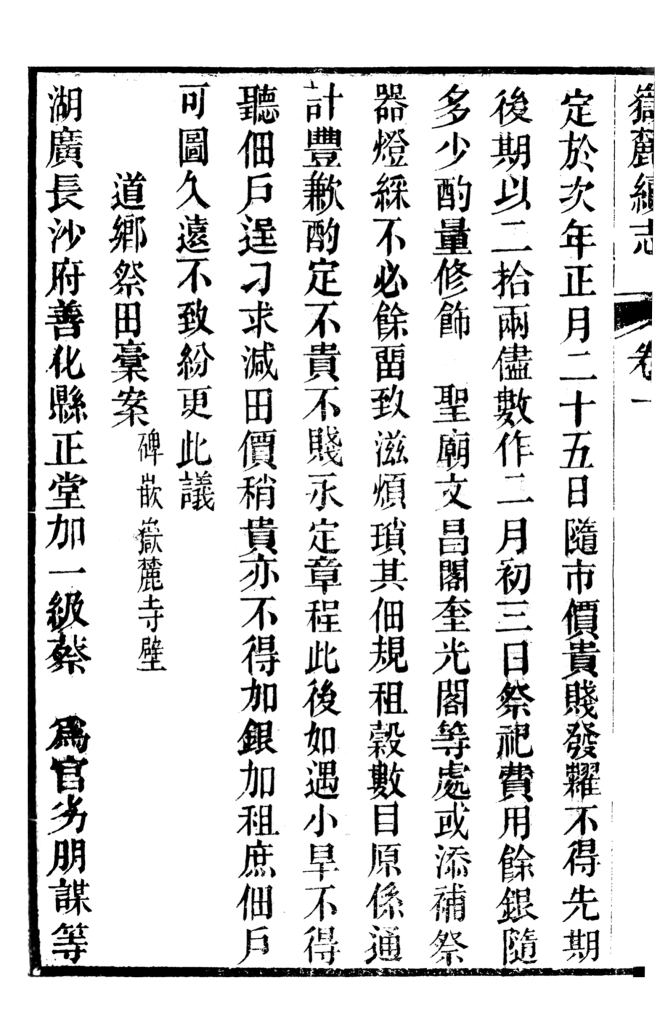 嶽麓續志
卷一
定於次年正月二十五日隨市價貴賤發糶不得先期
後期以二拾兩儘數作二月初三日祭祀費用餘銀隨
多少酌量修飾　聖廟文昌閣奎光閣等處或添補祭
器燈綵不必餘畱致滋煩瑣其佃規租穀數目原係通
計豐歉酌定不貴不賤永定章程此後如遇小旱不得
聽佃戶逞刁求減田價稍貴亦不得加銀加租庶佃戶
可圖久遠不致紛更此議
道鄉祭田稾案碑嵌嶽麓寺壁
湖廣長沙府善化縣正堂加一級蔡　爲官劣朋謀等